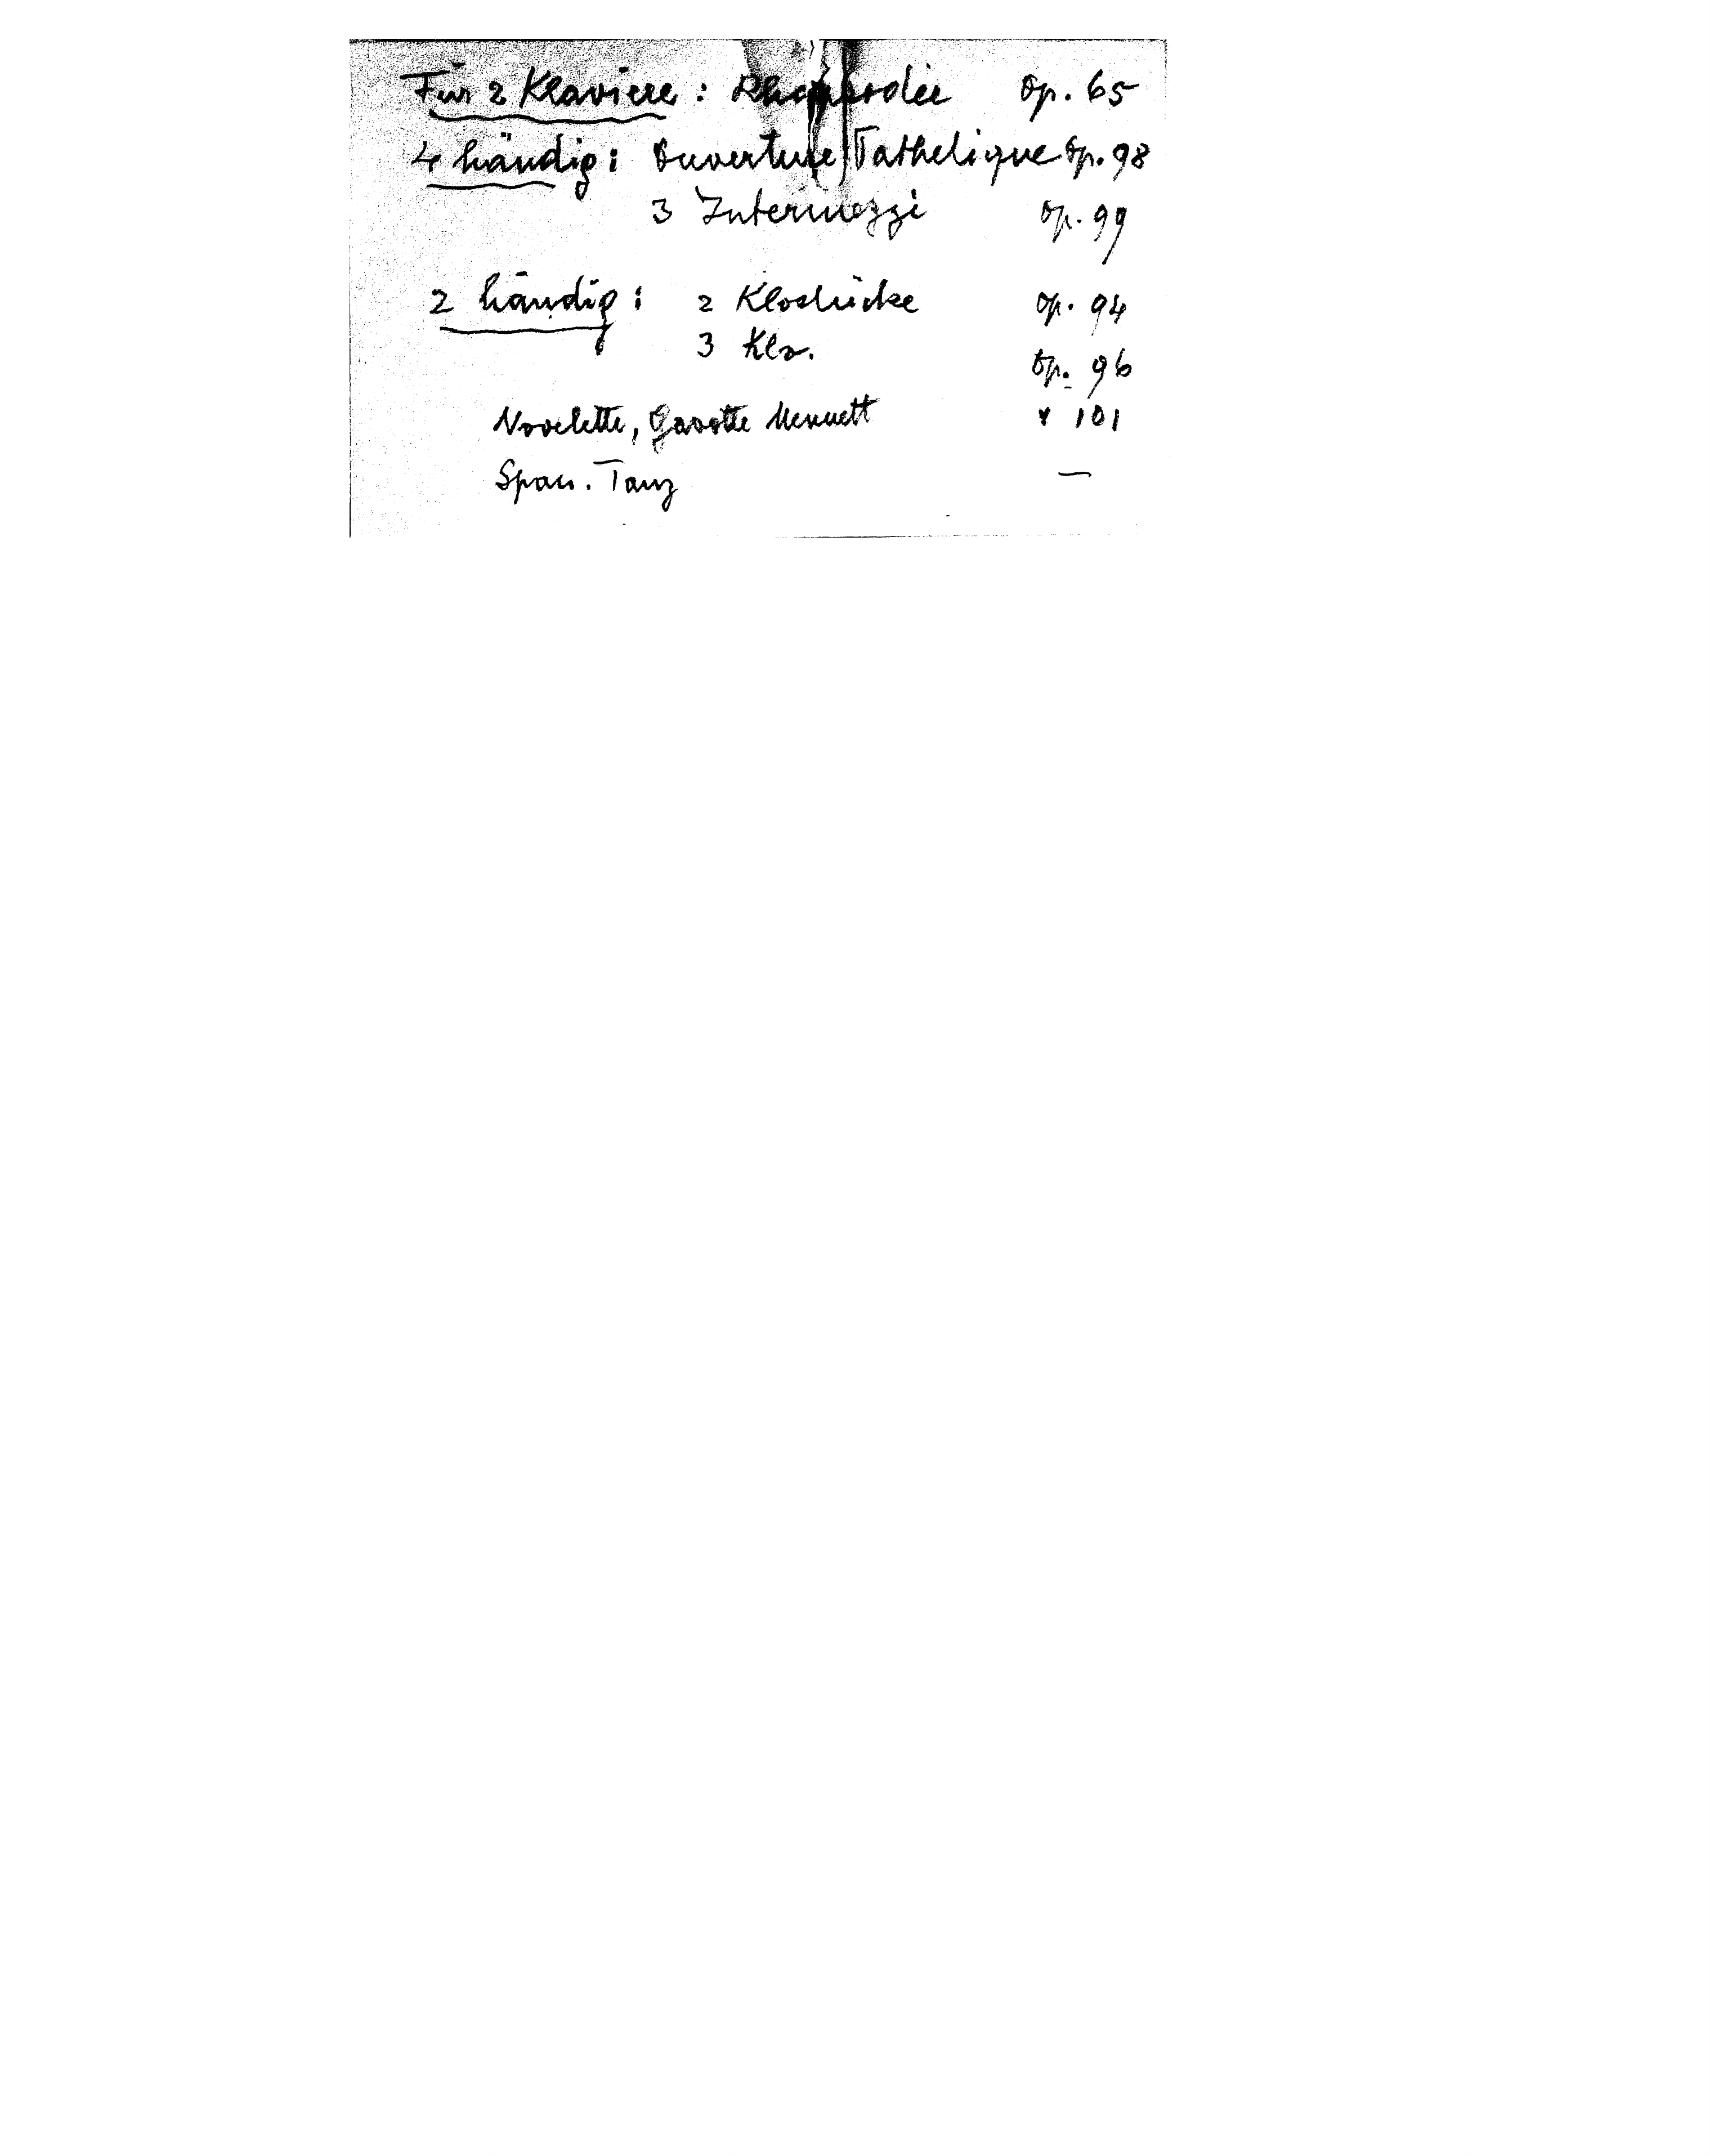 Für 2 Klaviere: Rhapsodie Op. 65
4 händig: Ouverture Pathetique Op. 98
3 Intermezzi Op. 99
2 händig: 2 Klvstücke Op. 94
3 Klv. Op. 96
Novelette, Gavotte Menuett " 101
Span. Tanz —